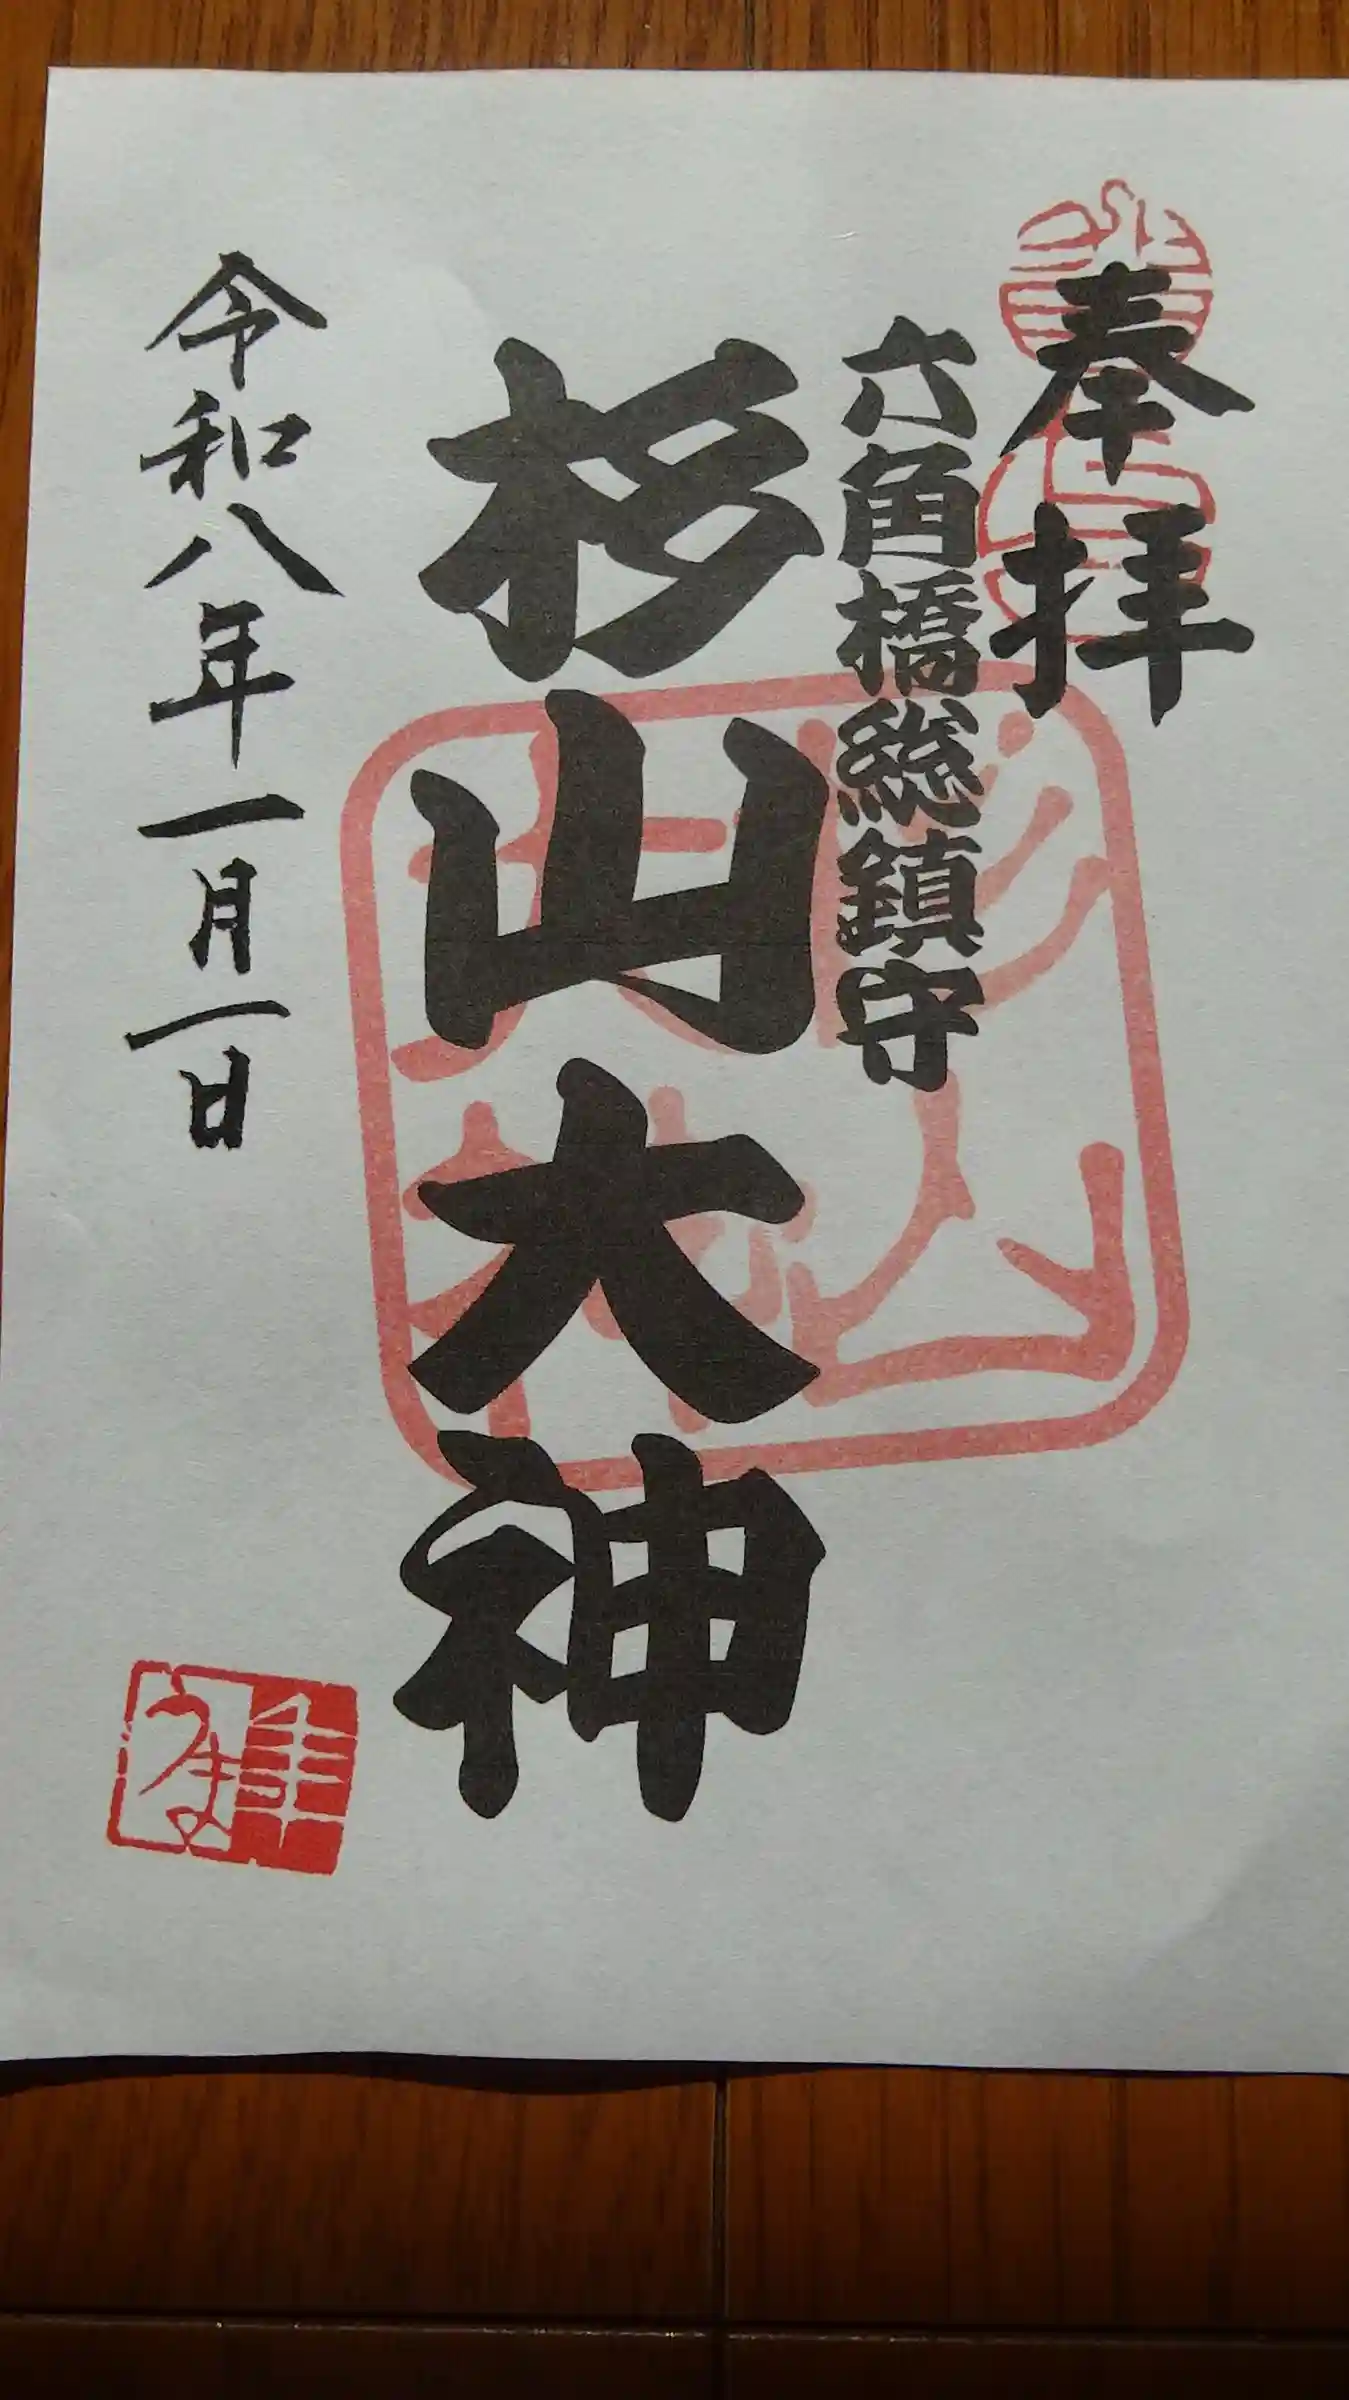 奉拝
六角橋総鎮守
杉山大神
令和八年一月一日
杉山
大神
うま